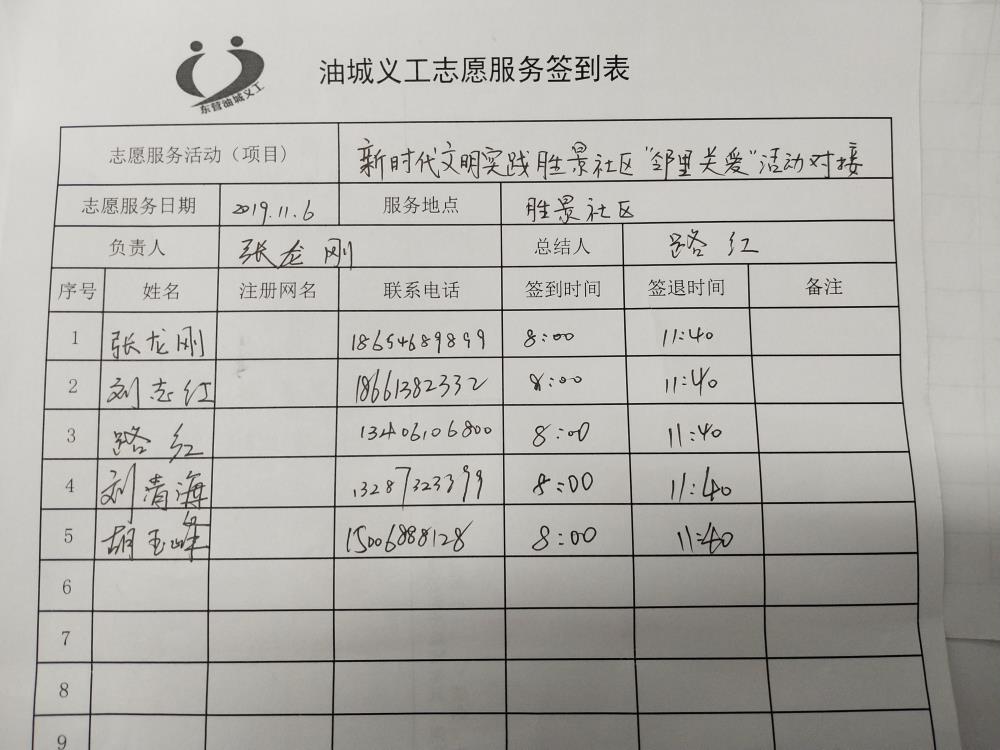 东营油城义工
油城义工志愿服务签到表
志愿服务活动（项目） 新时代文明实践胜景社区“邻里关爱”活动对接
志愿服务日期 2019.11.6 服务地点 胜景社区
负责人 张龙刚 总结人 路红
序号 姓名 注册网名 联系电话 签到时间 签退时间 备注
1 张龙刚 18654689899 8:00 11:40
2 刘志红 18661382332 8:00 11:40
3 路红 13406106800 8:00 11:40
4 刘清海 13287323399 8:00 11:40
5 胡玉峰 15006888128 8:00 11:40
6
7
8
9